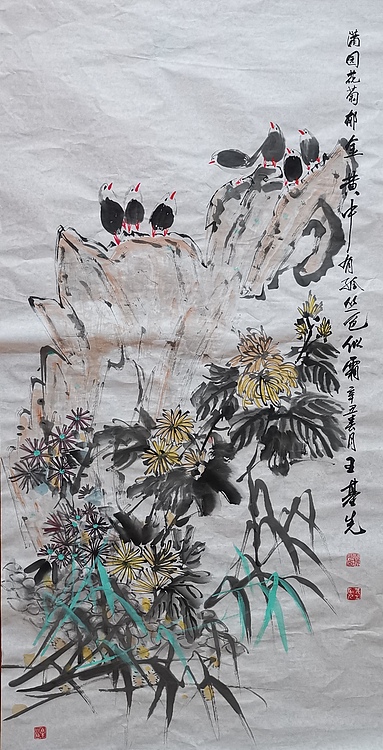 满园花菊郁金黄中有孤丛色似霜辛丑春月王基先